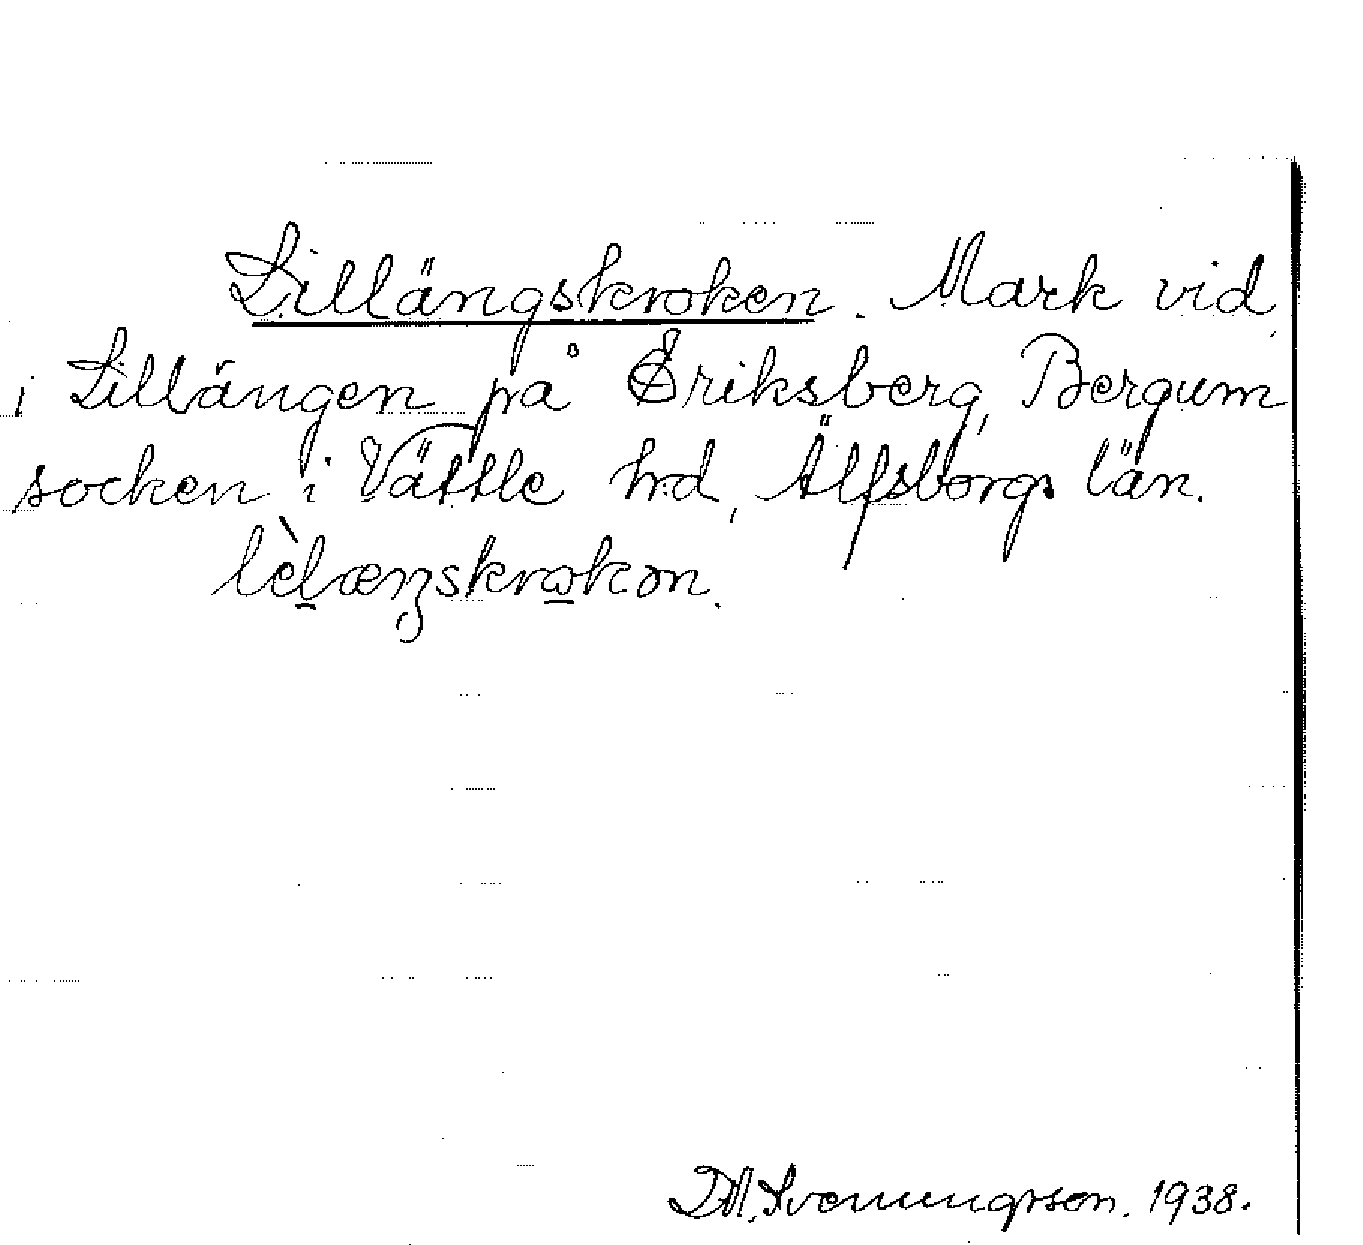 Lillängskroken. Mark vid,
i Lillängen på Eriksberg, Bergum
socken i Vättle hrd, Älfsborgs län.
lèlænskrokon.
D.M. Svenungsson. 1938.